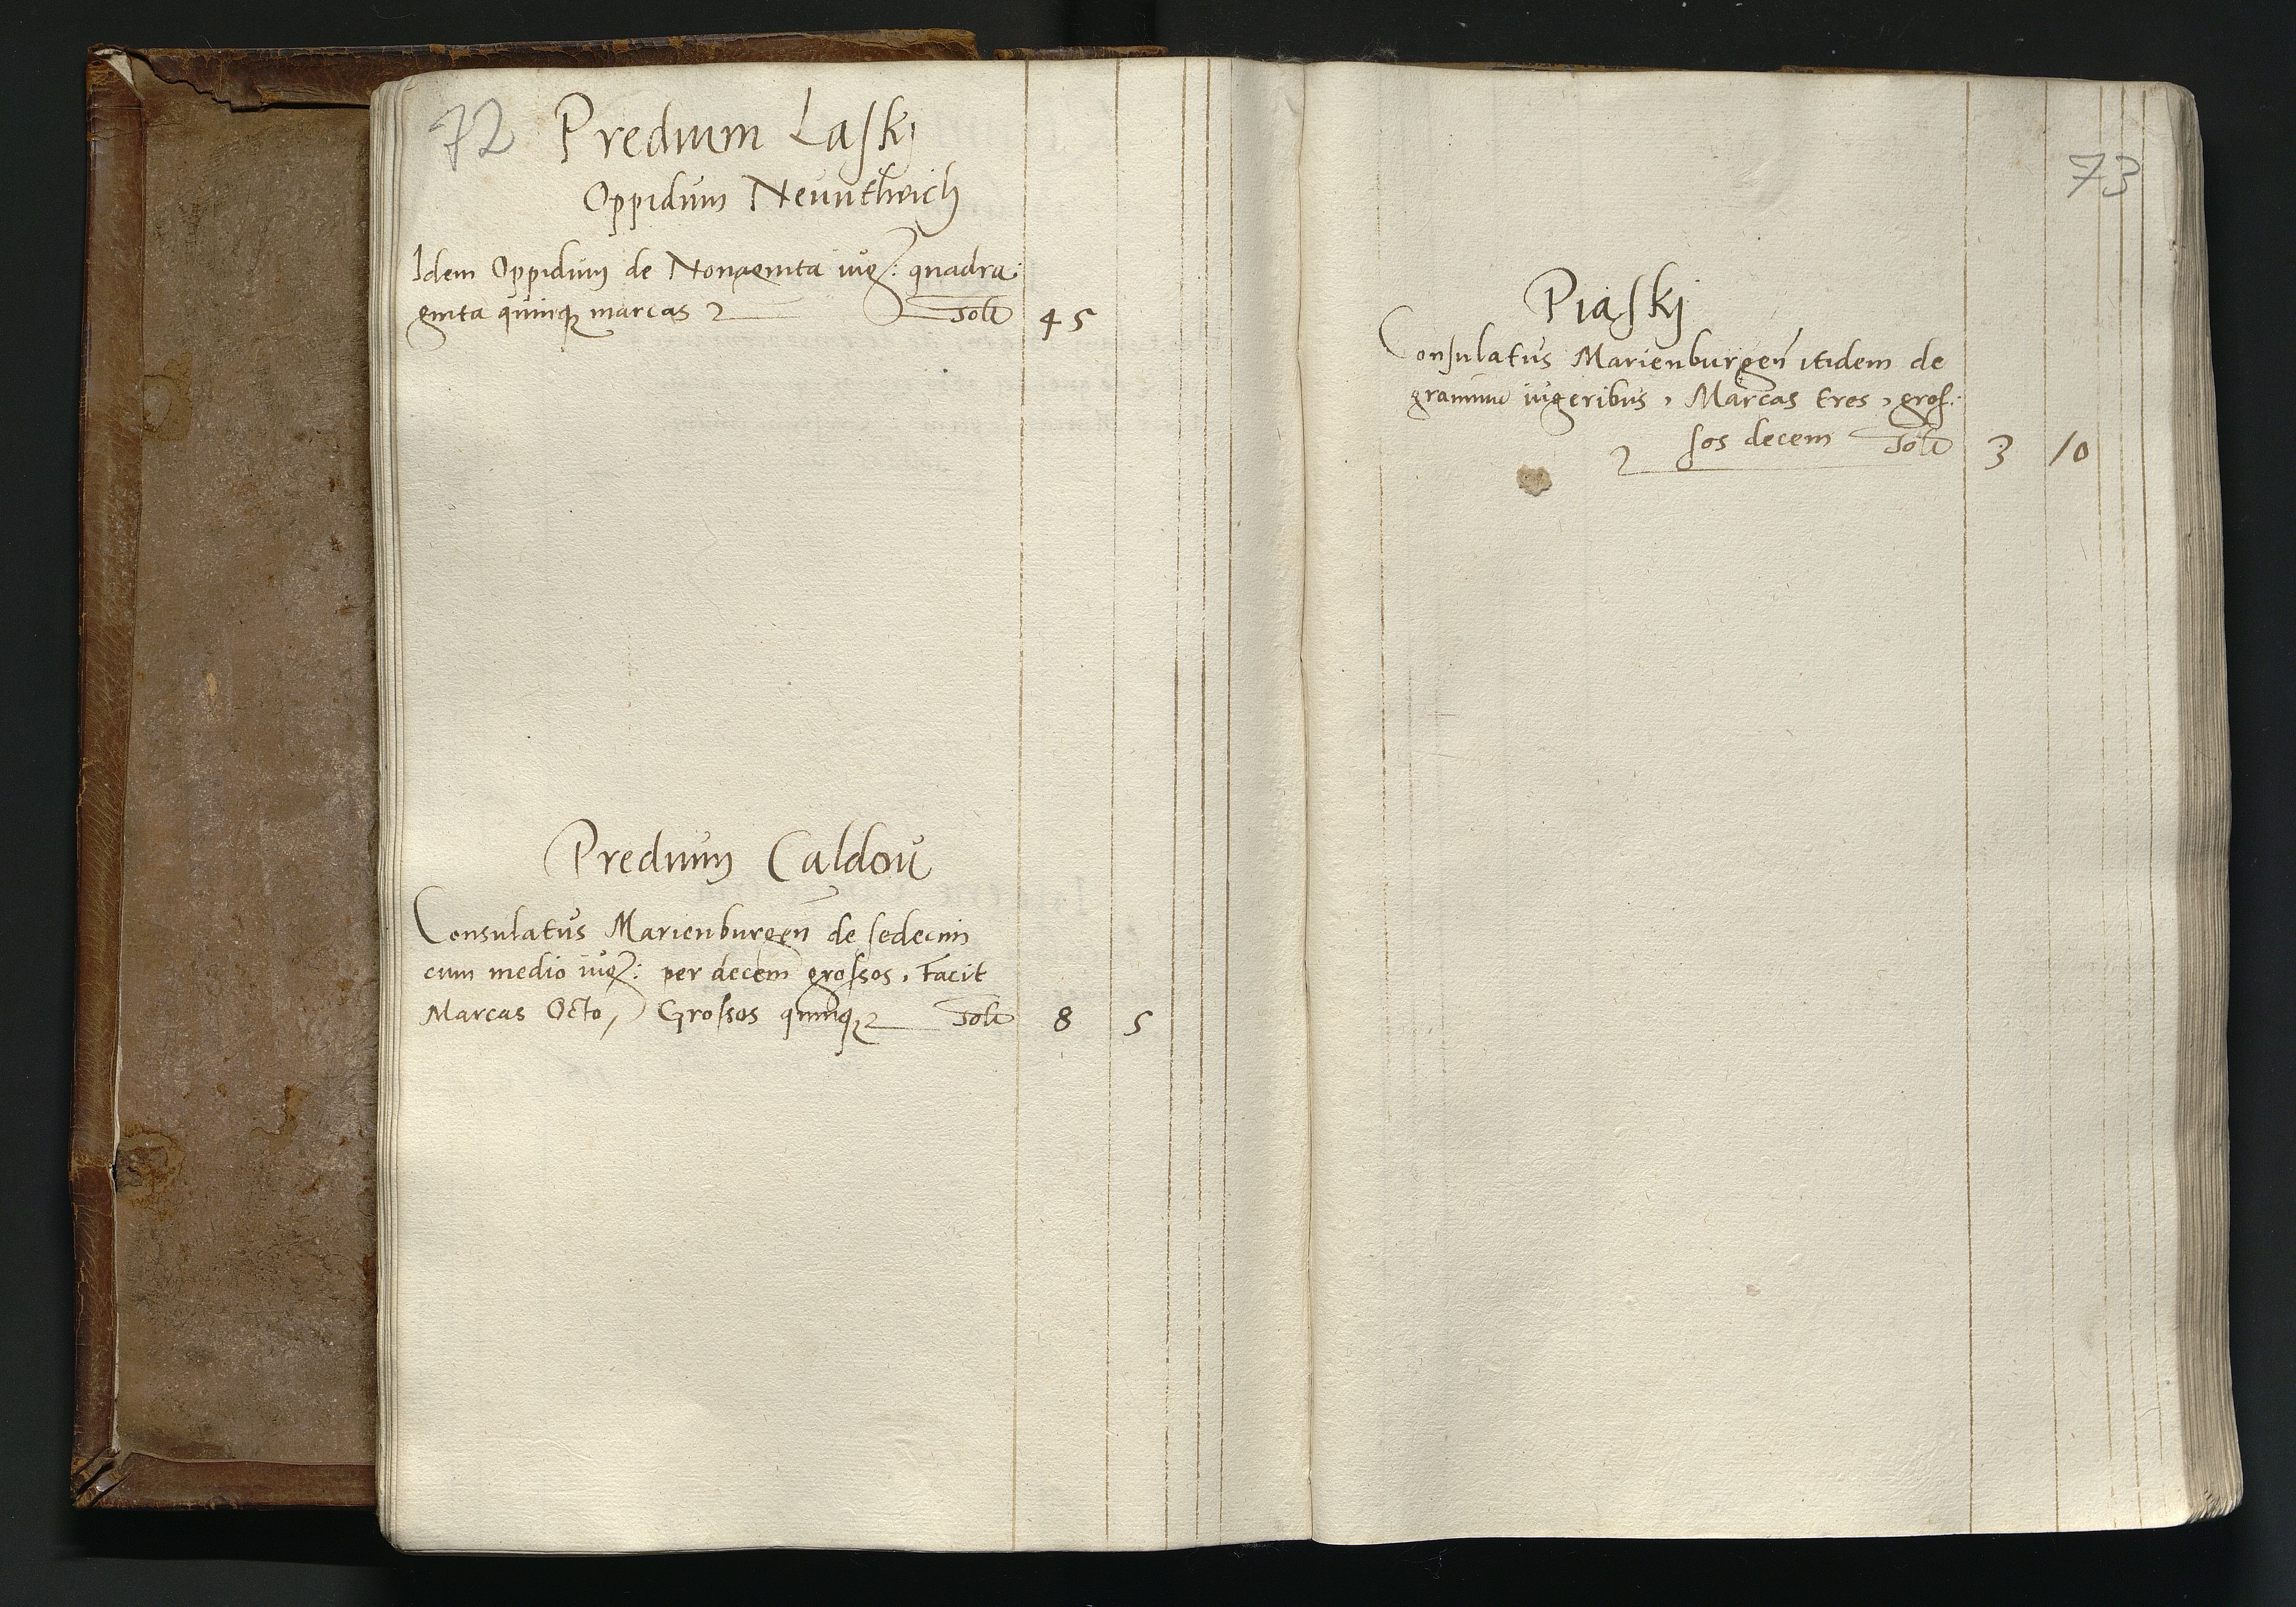 72 Predium Laskj
Oppidum Neuntheich
Idem Oppidum de Nonaginta iug: quadra:
ginta quinq marcas Solt 45
Predium Caldow
Consulatus Marienburgen de sedecim
cum medio iug: per decem grossos, Facit
Marcas Octo, Grossos quinq Solt 8 5
73
Piaskj
Consulatus Marienburgen itidem de
iugeribus, Marcas tres, gros:
sos decem Solt 3 10